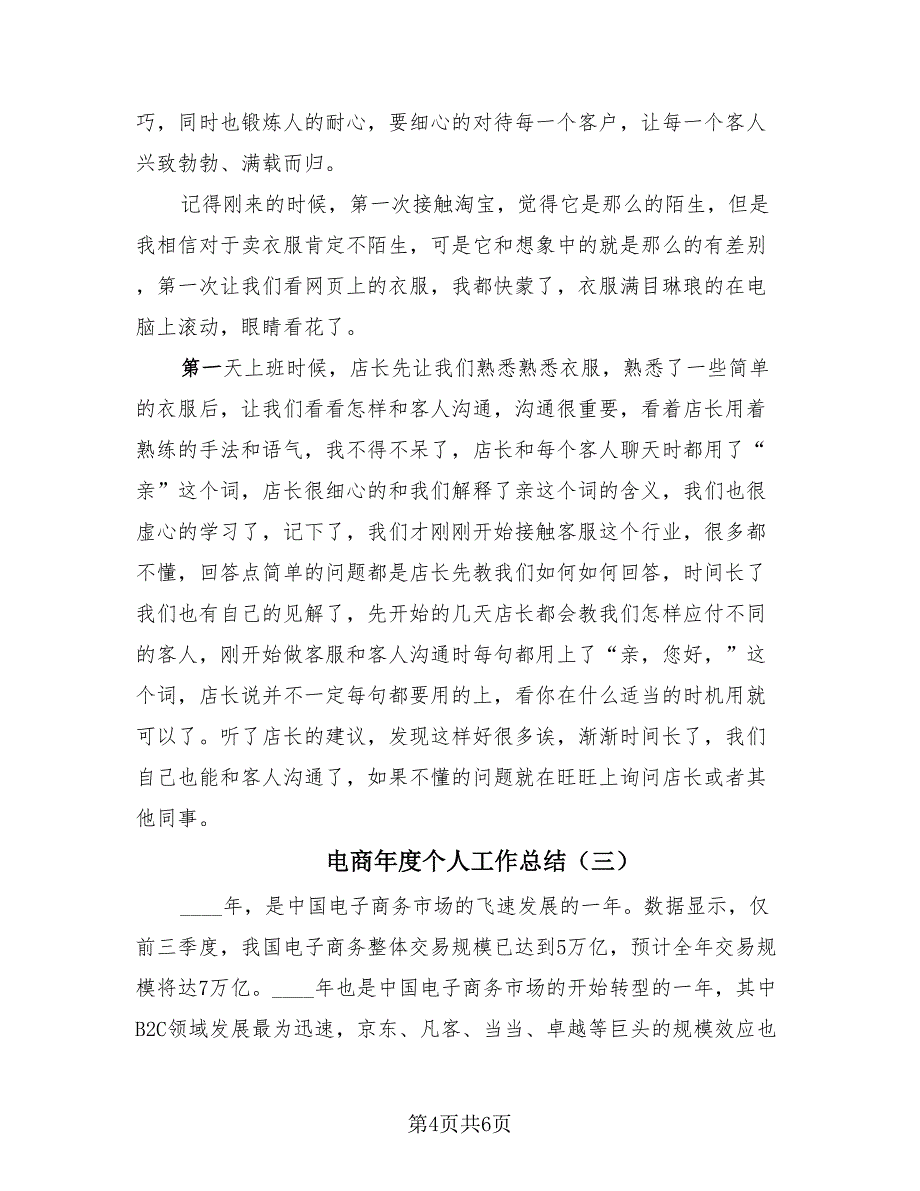 巧，同时也锻炼人的耐心，要细心的对待每一个客户，让每一个客人
兴致勃勃、满载而归。
记得刚来的时候，第一次接触淘宝，觉得它是那么的陌生，但是
我相信对于卖衣服肯定不陌生，可是它和想象中的就是那么的有差别
，第一次让我们看网页上的衣服，我都快蒙了，衣服满目琳琅的在电
脑上滚动，眼睛看花了。
第一天上班时候，店长先让我们熟悉熟悉衣服，熟悉了一些简单
的衣服后，让我们看看怎样和客人沟通，沟通很重要，看着店长用着
熟练的手法和语气，我不得不呆了，店长和每个客人聊天时都用了“
亲”这个词，店长很细心的和我们解释了亲这个词的含义，我们也很
虚心的学习了，记下了，我们才刚刚开始接触客服这个行业，很多都
不懂，回答点简单的问题都是店长先教我们如何如何回答，时间长了
我们也有自己的见解了，先开始的几天店长都会教我们怎样应付不同
的客人，刚开始做客服和客人沟通时每句都用上了“亲，您好，”这
个词，店长说并不一定每句都要用的上，看你在什么适当的时机用就
可以了。听了店长的建议，发现这样好很多诶，渐渐时间长了，我们
自己也能和客人沟通了，如果不懂的问题就在旺旺上询问店长或者其
他同事。
电商年度个人工作总结（三）
____年，是中国电子商务市场的飞速发展的一年。数据显示，仅
前三季度，我国电子商务整体交易规模已达到5万亿，预计全年交易规
模将达7万亿。____年也是中国电子商务市场的开始转型的一年，其中
B2C领域发展最为迅速，京东、凡客、当当、卓越等巨头的规模效应也
第4页共6页